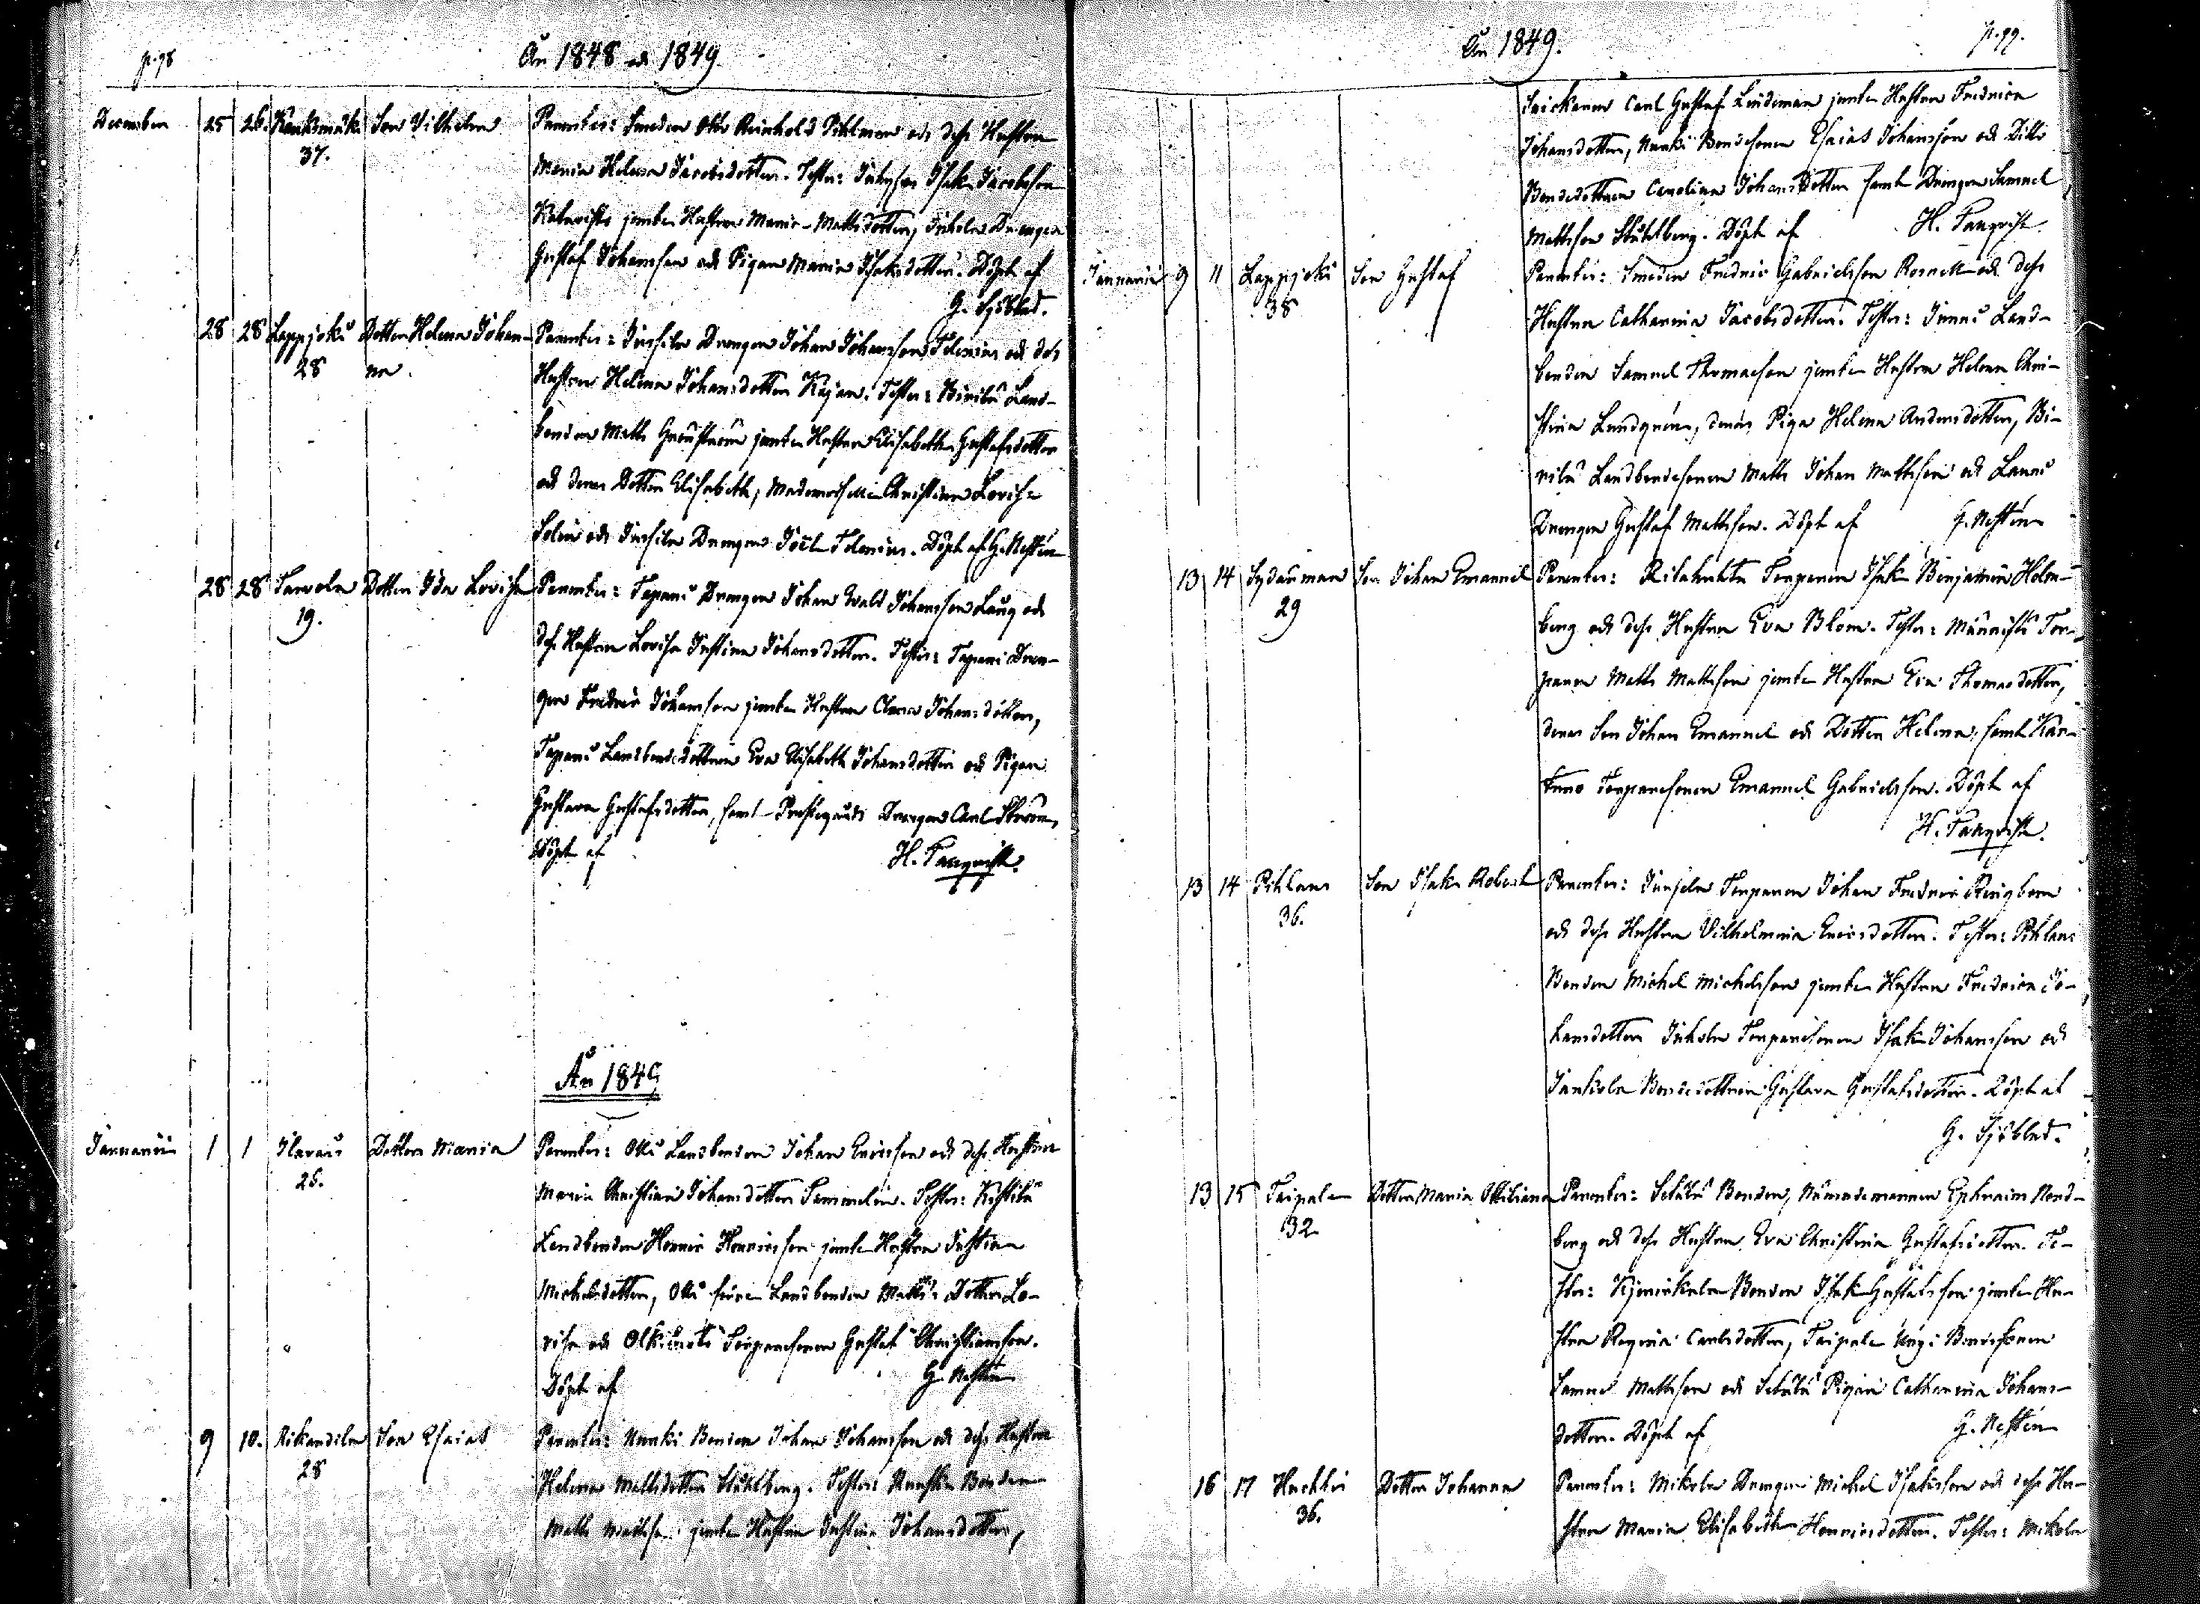 p. 98
År 1848 och 1849.
December 25 26. Kauksmäki Son Vilhelm Parentes: Smeden Otto Reinhold Pihlman och dess Hustru
37. Maria Helena Jacobsdotter. Testes: Isak Jacobsson
jemte Hustru Maria Mattsdotter, Drengen
Gustaf Johansson och Pigan Maria Isaksdotter. Döpt af
G. Sjöblad.
28 28 Lappjoki Dotter Helena Johan- Parentes: Drengen Johan Johansson Telenius och dess
28 na. Hustru Helena Johansdotter Kajan. Testes: Birilä Land-
bonden Matts jemte Hustru Elisabeth Gustafsdotter
och deras Dotter Elisabeth, Mademoiselle Christina Lovisa
Solin och Drengen Joel Telenius. Döpt af G. Nestén
28 28 Tarvola Dotter Ida Lovisa Parentes: Tapani Drengen Johan Evald Johansson Laug och
19. dess Hustru Lovisa Justina Johansdotter. Testes: Tapani Dren-
gen Fredric Johansson jemte Hustru Clara Johansdotter,
Tapani Landbondedottern Eva Elisabeth Johansdotter och Pigan
Gustava Gustafsdotter, samt Prestegårds Drengen Carl Ström,
Döpt af H. Tanqvist.
År 1849
Januarii 1 1 Ilavais Dotter Maria Parentes: Olli Landbonden Johan Ericsson och dess Hustru
25. Maria Christina Johansdotter Sammelin. Testes: Kestilä
Landbonden Henric Henricsson jemte Hustru Justina
Michelsdotter, Olli förre Landbonden Matts's Dotter Lo-
visa och Olkiluoto Torparesonen Gustaf Christiansson.
Döpt af G. Nestén
9 10. Rikandila Son Esaias Parentes: Nunki Bonden Johan Johansson och dess Hustru
28 Helena Mattsdotter Stählberg. Testes: Bonden
Matts jemte Hustru Justina Johansdotter,
År 1849.
p. 99.
Snickaren Carl Gustaf Lindeman jemte Hustru Fredrica
Johansdotter, Nunki Bondesonen Esaias Johansson och Ditto
Bondedottern Carolina Johansdotter samt Drengen Samuel
Mattsson Stählberg. Döpt af H. Tanqvist.
Januarii 9 11 Lappjoki Son Gustaf Parentes: Smeden Fredric Gabrielsson Rosnell och dess
38 Hustru Catharina Jacobsdotter. Testes: Land-
bonden Samuel Thomasson jemte Hustru Helena Chri-
stina Lundgrén, deras Piga Helena Andersdotter, Bi-
rilä Landbondesonen Matts Johan Mattsson och
Drengen Gustaf Mattsson. Döpt af G. Nestén
13 14 Sydänmaa Son Johan Emanuel Parentes: Torparen Isak Benjamin Holm-
29 berg och dess Hustru Eva Blom. Testes: Männistö Tor-
paren Matts Mattsson jemte Hustru Eva Thomasdotter,
deras Son Johan Emanuel och Dotter Helena, samt
Torparesonen Emanuel Gabrielsson. Döpt af
H. Tanqvist.
13 14 Pihlaus Son Isak Robert Parentes: Torparen Johan Fredric Ringbom
36. och dess Hustru Vilhelmina Ericsdotter. Testes: Pihlaus
Bonden Michel Michelsson jemte Hustru Fredrica Jo-
hansdotter Torparesonen Isak Johansson och
Jankola Bondedottern Gustava Gustafsdotter. Döpt af
G. Sjöblad.
13 15 Taipale Dotter Maria Ottiliana Parentes: Setälä Bonden, Nämndemannen Ephraim Nord-
32 berg och dess Hustru Eva Christina Gustafsdotter. Te-
stes: Bonden Isak Gustafsson jemte Hu-
stru Regina Carlsdotter, Taipale Bondesonen
Samuel Mattsson och Setälä Pigan Catharina Johans-
dotter. Döpt af G. Nestén
16 17 Huchta Dotter Johanna Parentes: Mikola Drengen Michel Isaksson och dess Hu-
36. stru Maria Elisabeth Henricsdotter. Testes: Mikola